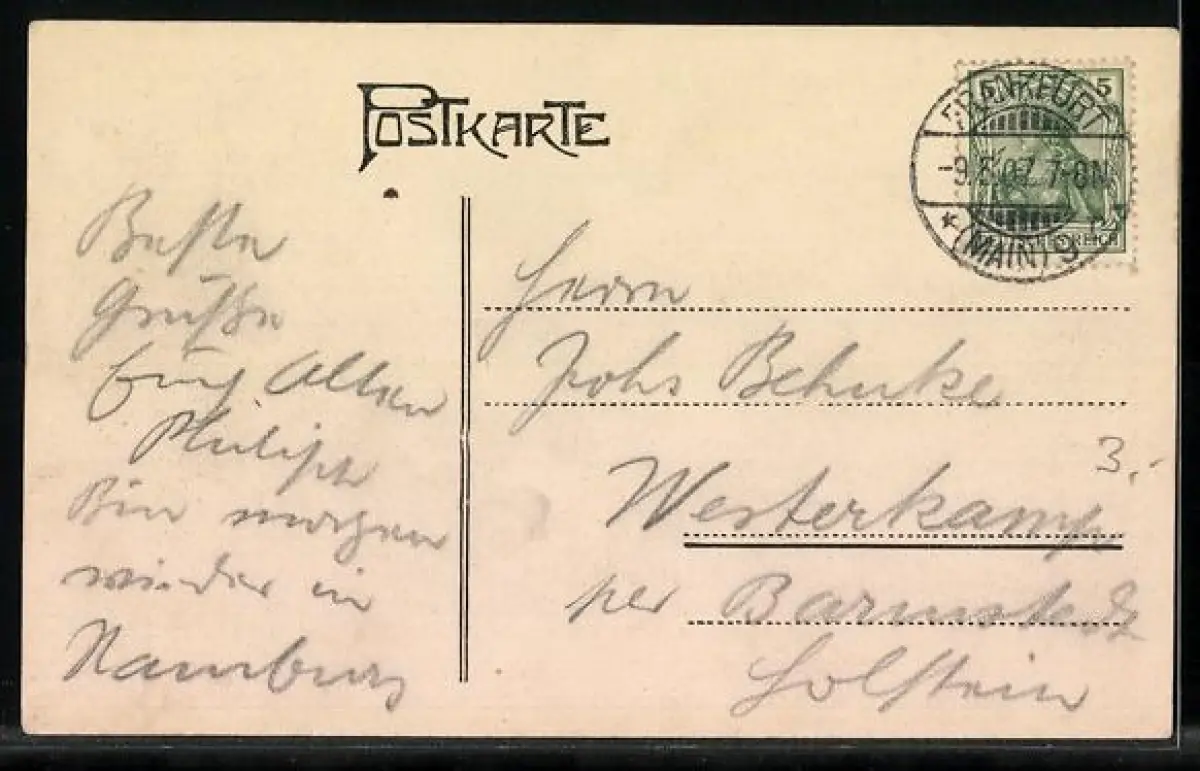 POSTKARTE
FRANKFURT
-9.8.07. 7-8N.
* (MAIN) 9
5
REICH
Beste
Grüße
Euch Allen
Philipp
Bin morgen
wieder in
Hamburg
Herrn
Johs Behnke
3.-
Westerkamp
per Barmstedt
Holstein